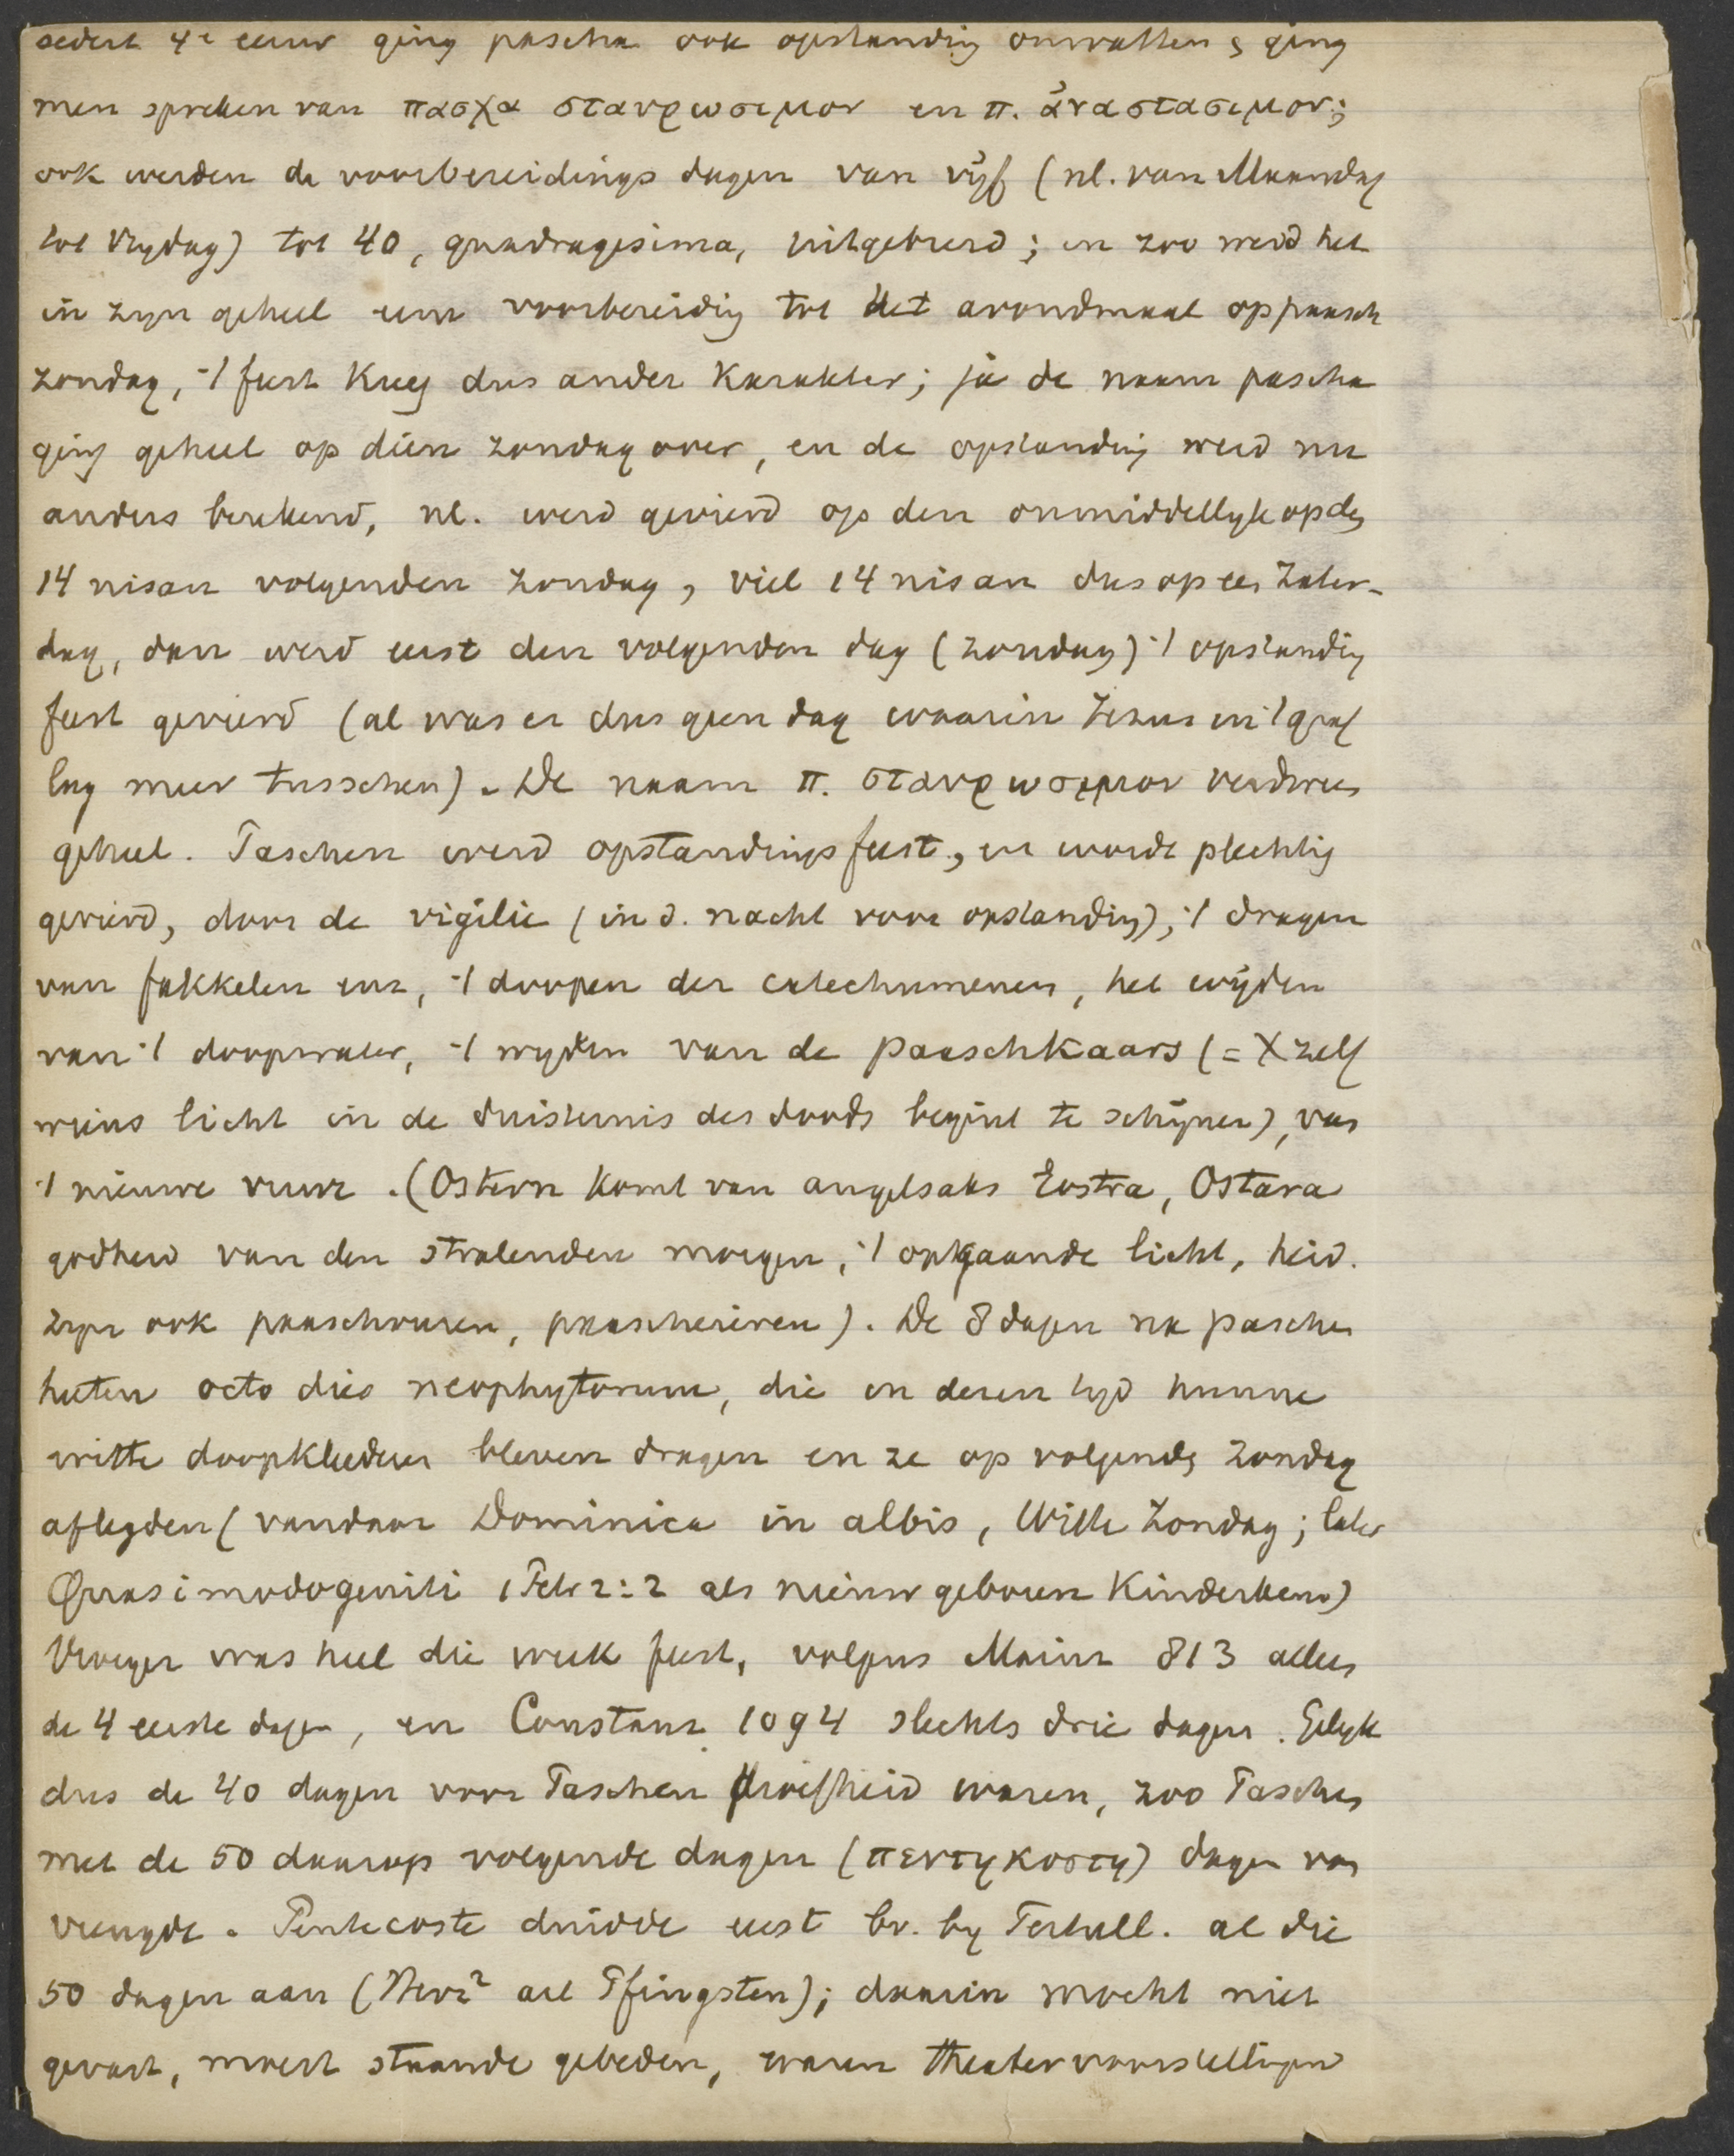 sedert 4e eeuw ging pascha ook opstanding omvatten & ging
men spreken van πασχα σταυρωσιμον en π. ἀναστασιμον;
ook werden de voorbereidings dagen van vijf (nl. van Maandag
tot Vrydag) tot 40, quadragesima, uitgebreid; en zoo werd het
in zyn geheel eene voorbereiding tot het avondmaal op paasch
zondag, 't feest kreeg dus ander karakter; ja de naam pascha
ging geheel op dien zondag over, en de opstanding werd nu
anders berekend, nl. werd gevierd op den onmiddellyk op den
14 nisan volgenden zondag, viel 14 nisan dus op een Zater-
dag, dan werd eerst den volgenden dag (zondag) 't opstanding
feest gevierd (al was er dus geen dag waarin Jezus in 't graf
lag meer tusschen). De naam π. σταυρωσιμον verdween
geheel. Paschen werd opstandingsfeest, en werd plechtig
gevierd, door de vigilie (in d. nacht voor opstanding), 't dragen
van fakkelen enz, 't doopen der catechumenen, het wijden
van 't doopwater, 't wyden van de paaschkaars (= X zelf
wiens licht in de duisternis des doods begint te schijnen), van
't nieuwe vuur. (Ostern komt van angelsaks Eostra, Ostara
godheid van den stralenden morgen, 't opgaande licht, heid.
zyn ook paaschvuren, paascheieren). De 8 dagen na paschen
heeten octo dies neophytorum, die in deren tyd hunne
witte doopkleederen bleven dragen en ze op volgende zondag
aflegden (vandaar Dominica in albis, Witte Zondag; later
Quasimodogeniti 1 Petr 2:2 als nieuw geboren kinderkens)
Vroeger was heel die week feest, volgens Mainz 813 alleen
de 4 eerste dagen, en Constanz 1094 slechts drie dagen. Gelyk
dus de 40 dagen voor Paschen droefheid waren, zoo Paschen
met de 50 daarop volgende dagen (πεντηκοστη) dagen van
vreugde. Pentecoste duidde eerst bv. by Tertull. al die
50 dagen aan (Herz² art Pfingsten); daarin mocht niet
gevast, moest staande gebeden, waren theatervoorstellingen